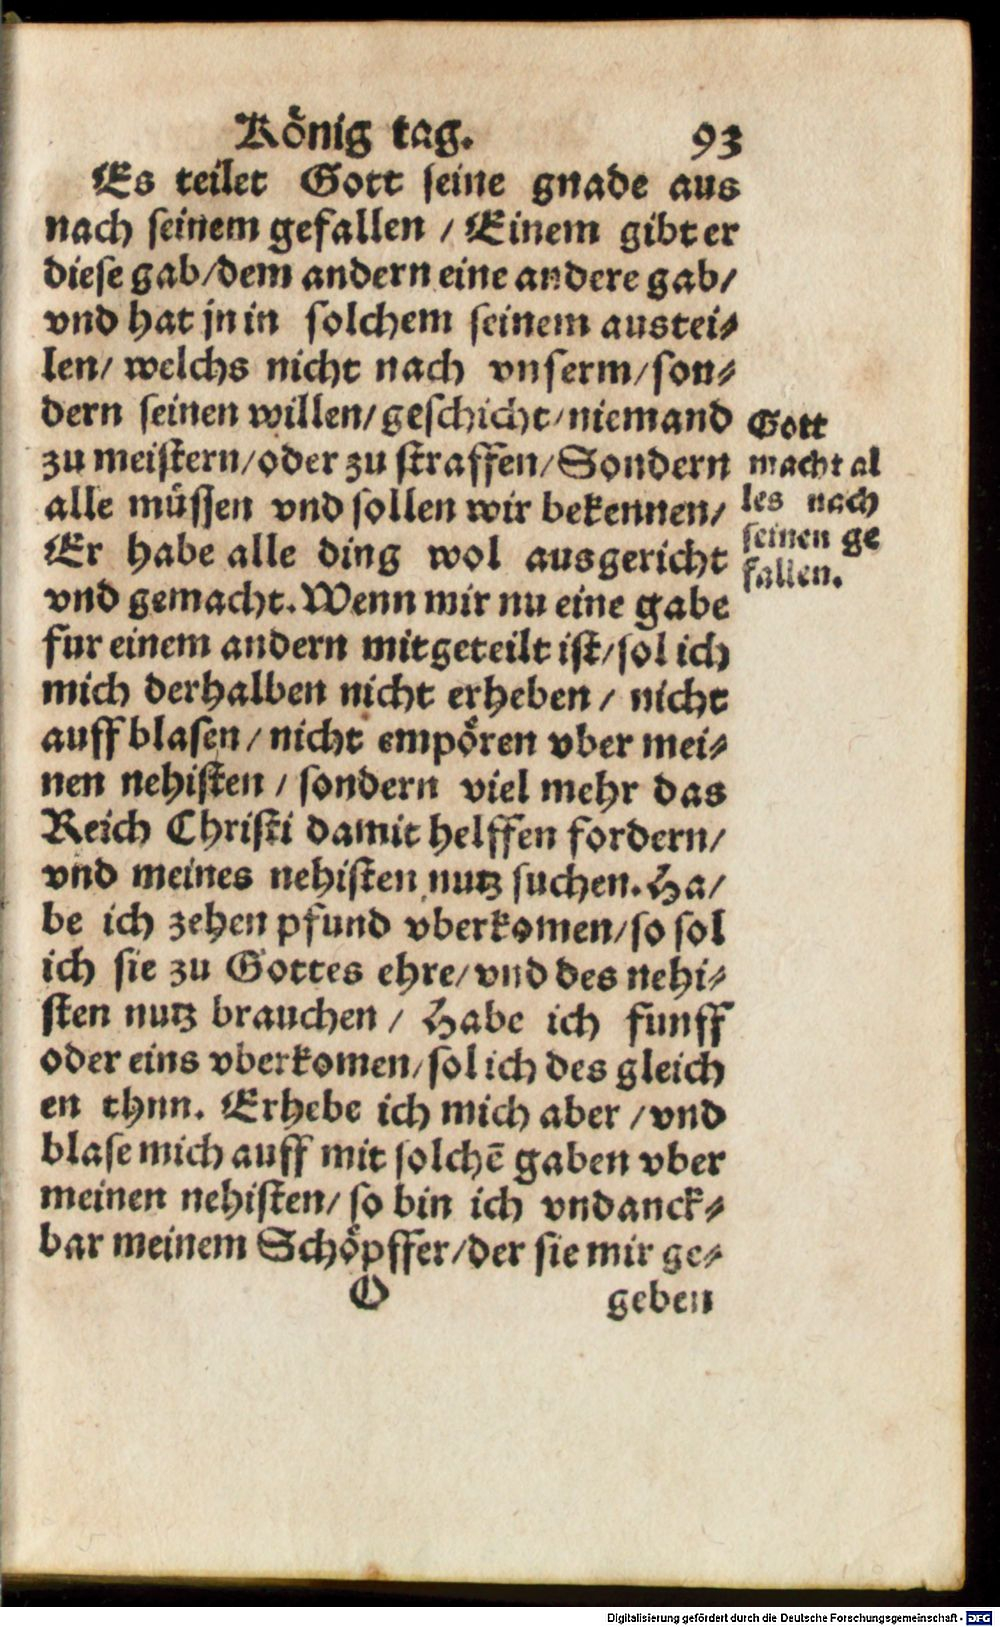 Koͤnig tag. 93
Es teilet Gott seine gnade aus
nach seinem gefallen / Einem gibt er
diese gab / dem andern eine andere gab /
vnd hat jn in solchem seinem austei⸗
len / welchs nicht nach vnserm / son⸗
dern seinen willen / geschicht / niemand
zu meistern / oder zu straffen / Sondern
alle muͤssen vnd sollen wir bekennen /
Er habe alle ding wol ausgericht
vnd gemacht. Wenn mir nu eine gabe
fur einem andern mitgeteilt ist / sol ich
mich derhalben nicht erheben / nicht
auffblasen / nicht empoͤren vber mei⸗
nen nehisten / sondern viel mehr das
Reich Christi damit helffen fordern /
vnd meines nehisten nutz suchen. Ha /
be ich zehen pfund vberkomen / so sol
ich sie zu Gottes ehre / vnd des nehi⸗
sten nutz brauchen / Habe ich funff
oder eins vberkomen / sol ich des gleich
en thun. Erhebe ich mich aber / vnd
blase mich auff mit solchē gaben vber
meinen nehisten / so bin ich vndanck⸗
bar meinem Schoͤpffer / der sie mir ge⸗
O geben
Gott
macht al
les nach
seinen ge
fallen.
Digitalisierung gefördert durch die Deutsche Forschungsgemeinschaft - DFG